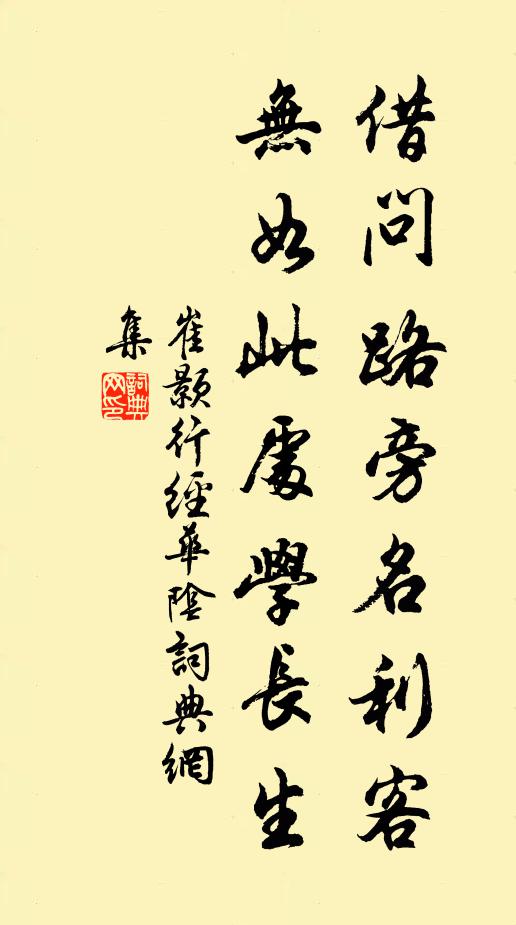 借問路旁名利客
無如此處學長生
崔顥行經華陰詞典網
集
詞典
网印